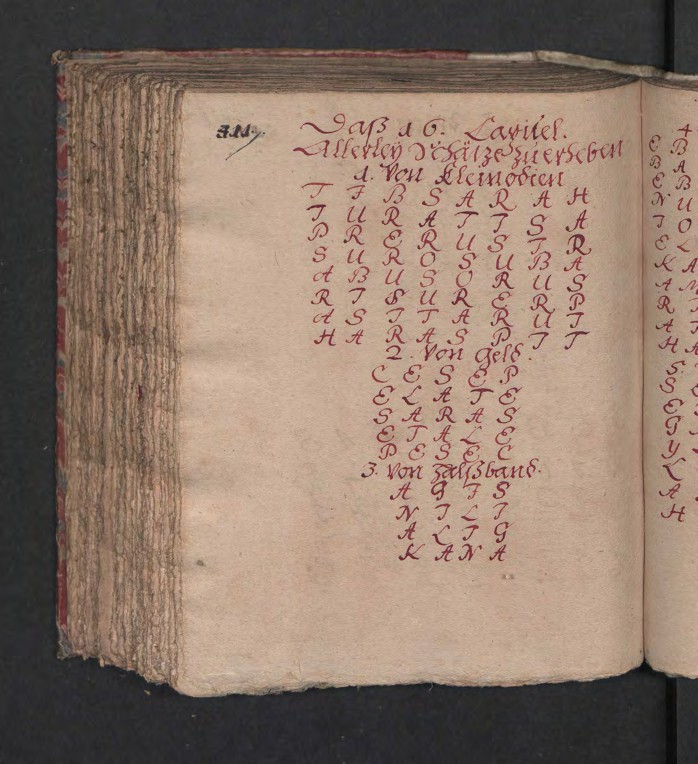 Daß 16. Capitel.
Allerley Schätze zu erheben
1. Von Kleinodien
T I B S A R A H
I U R A T T S A
B R E R U S T R
S U R O S U B A
A B U S O R U S
R T S U R E R B
A S T T A R U I
H A R A S B I T
2. Von Geld.
C E S E P
E L A T E
S A R A S
E T A L E
P E S E C
3. Von Halßband.
A G I S
N I L I
A L I G
K A N A
4
E B
B A
E U
N O
I L
E A
K
A
R
A
H
S
S
E
G
Y
L
A
H